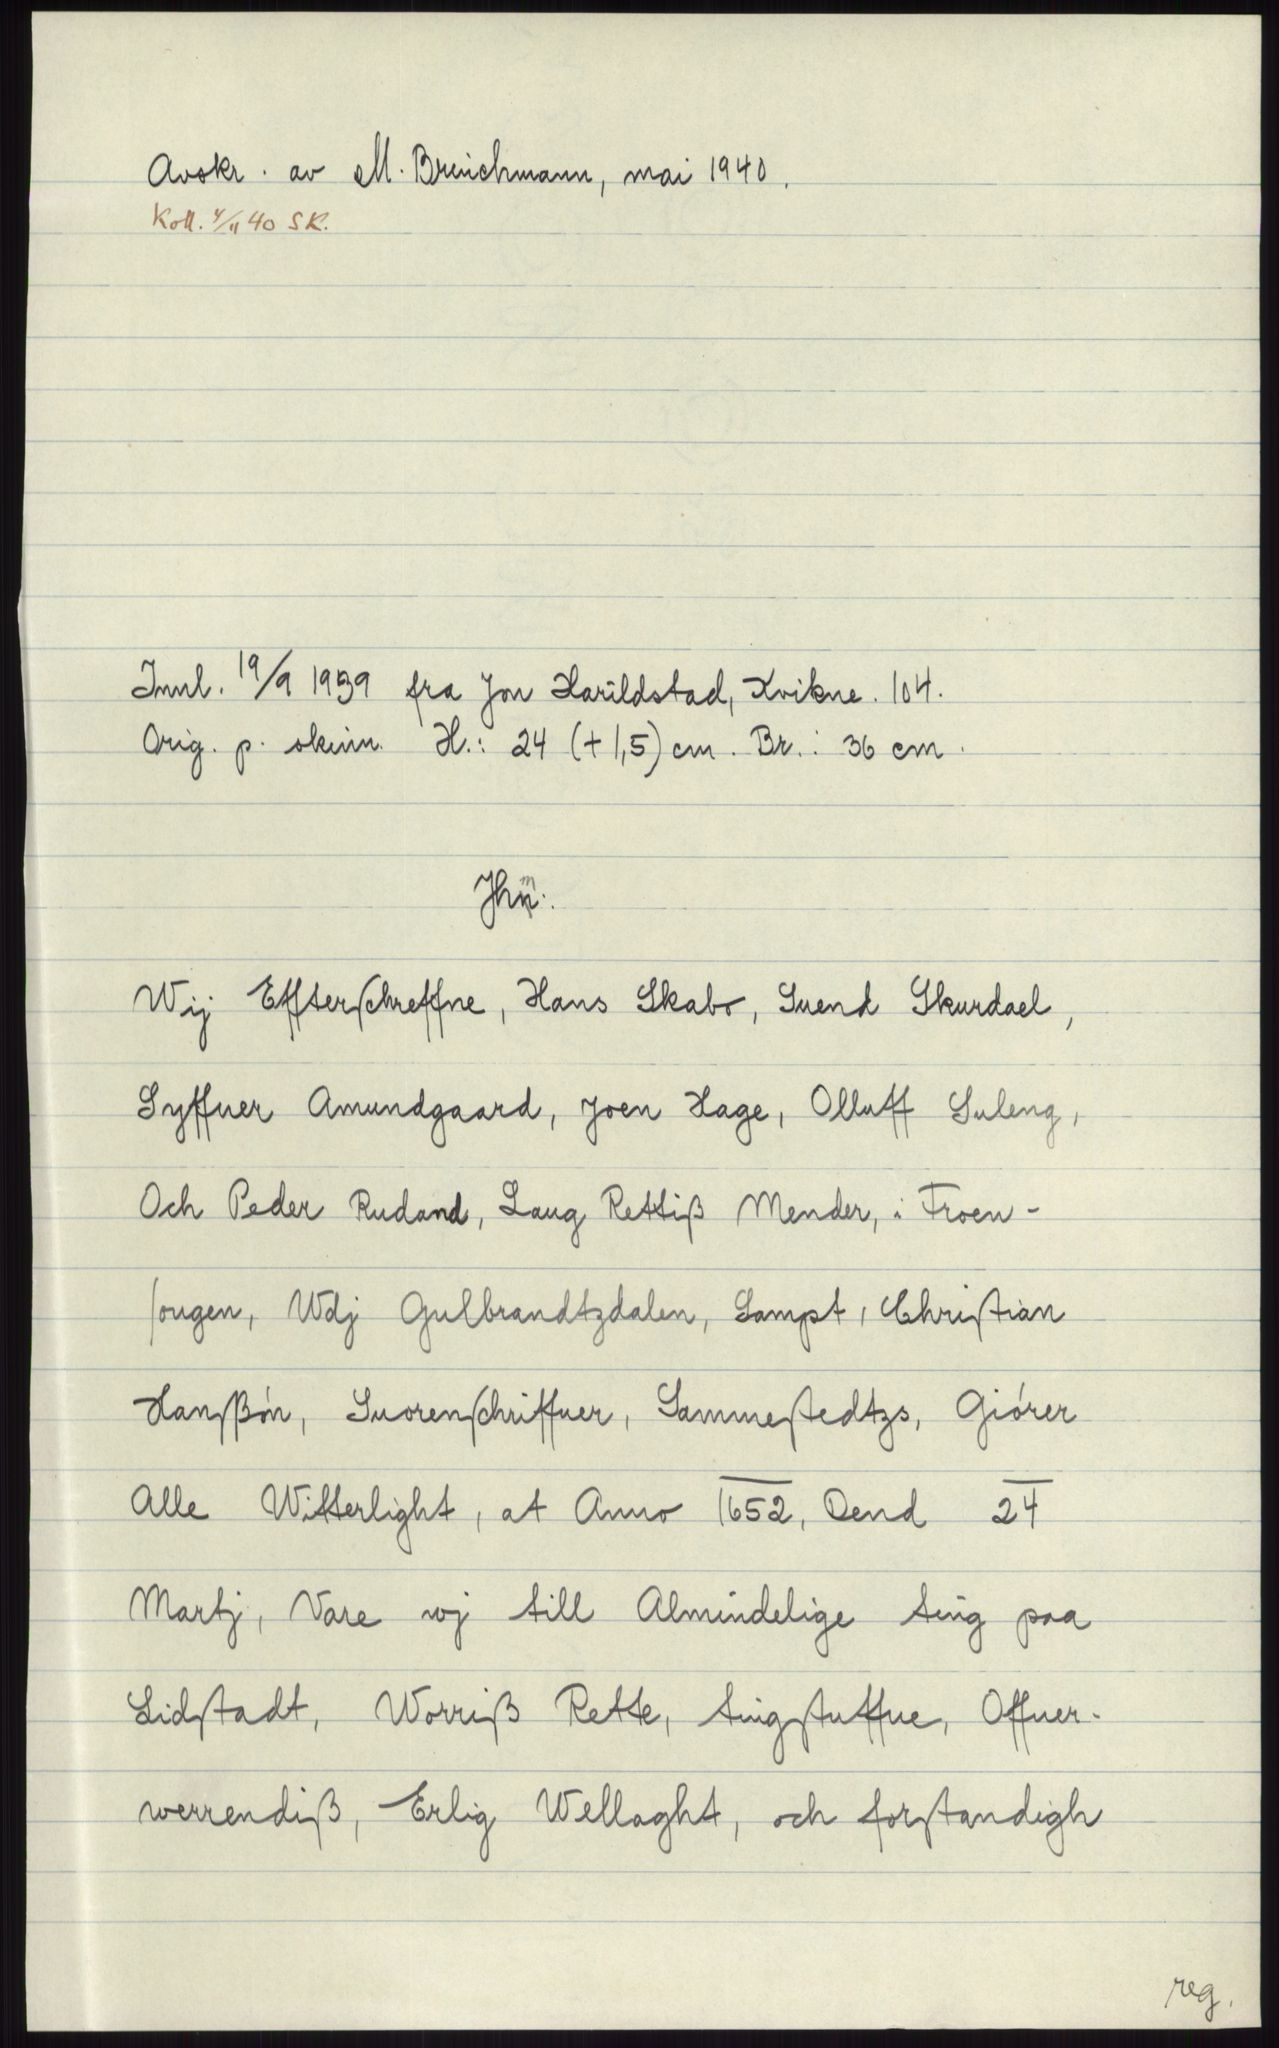 Avskr. av M. Breichmann, mai 1940.
Koll. 4/11 40 SK.
Innl. 19/9 1939 fra Jon Harildstad, Kvikne. 104.
Orig. p. skinn. H.: 24 (+1,5) cm. Br.: 36 cm.
Jhm:.
Wij Effterſchreffne, Hans Skabo, Suend Skurdael,
Syffuer Amundgaard, Joen Hage, Olluff Suleng,
Och Peder Rudand, Laug Rettiß Mender, i Froen-
ſougen, Wdj Gulbrandtzdalen, Sampt, Chriſtian
Hanſßón, Suorenſchriffuer, Sammeſtedtzs, Giórer
Alle Witterlight, at Anno 1652, Dend 24
Martj, Vare wj till Almindelige ting paa
Lidſtadt, Worriß Rette, tingſtuffue, Offuer-
werrendiß, Erlig Wellaght, och forſtandigh
reg.